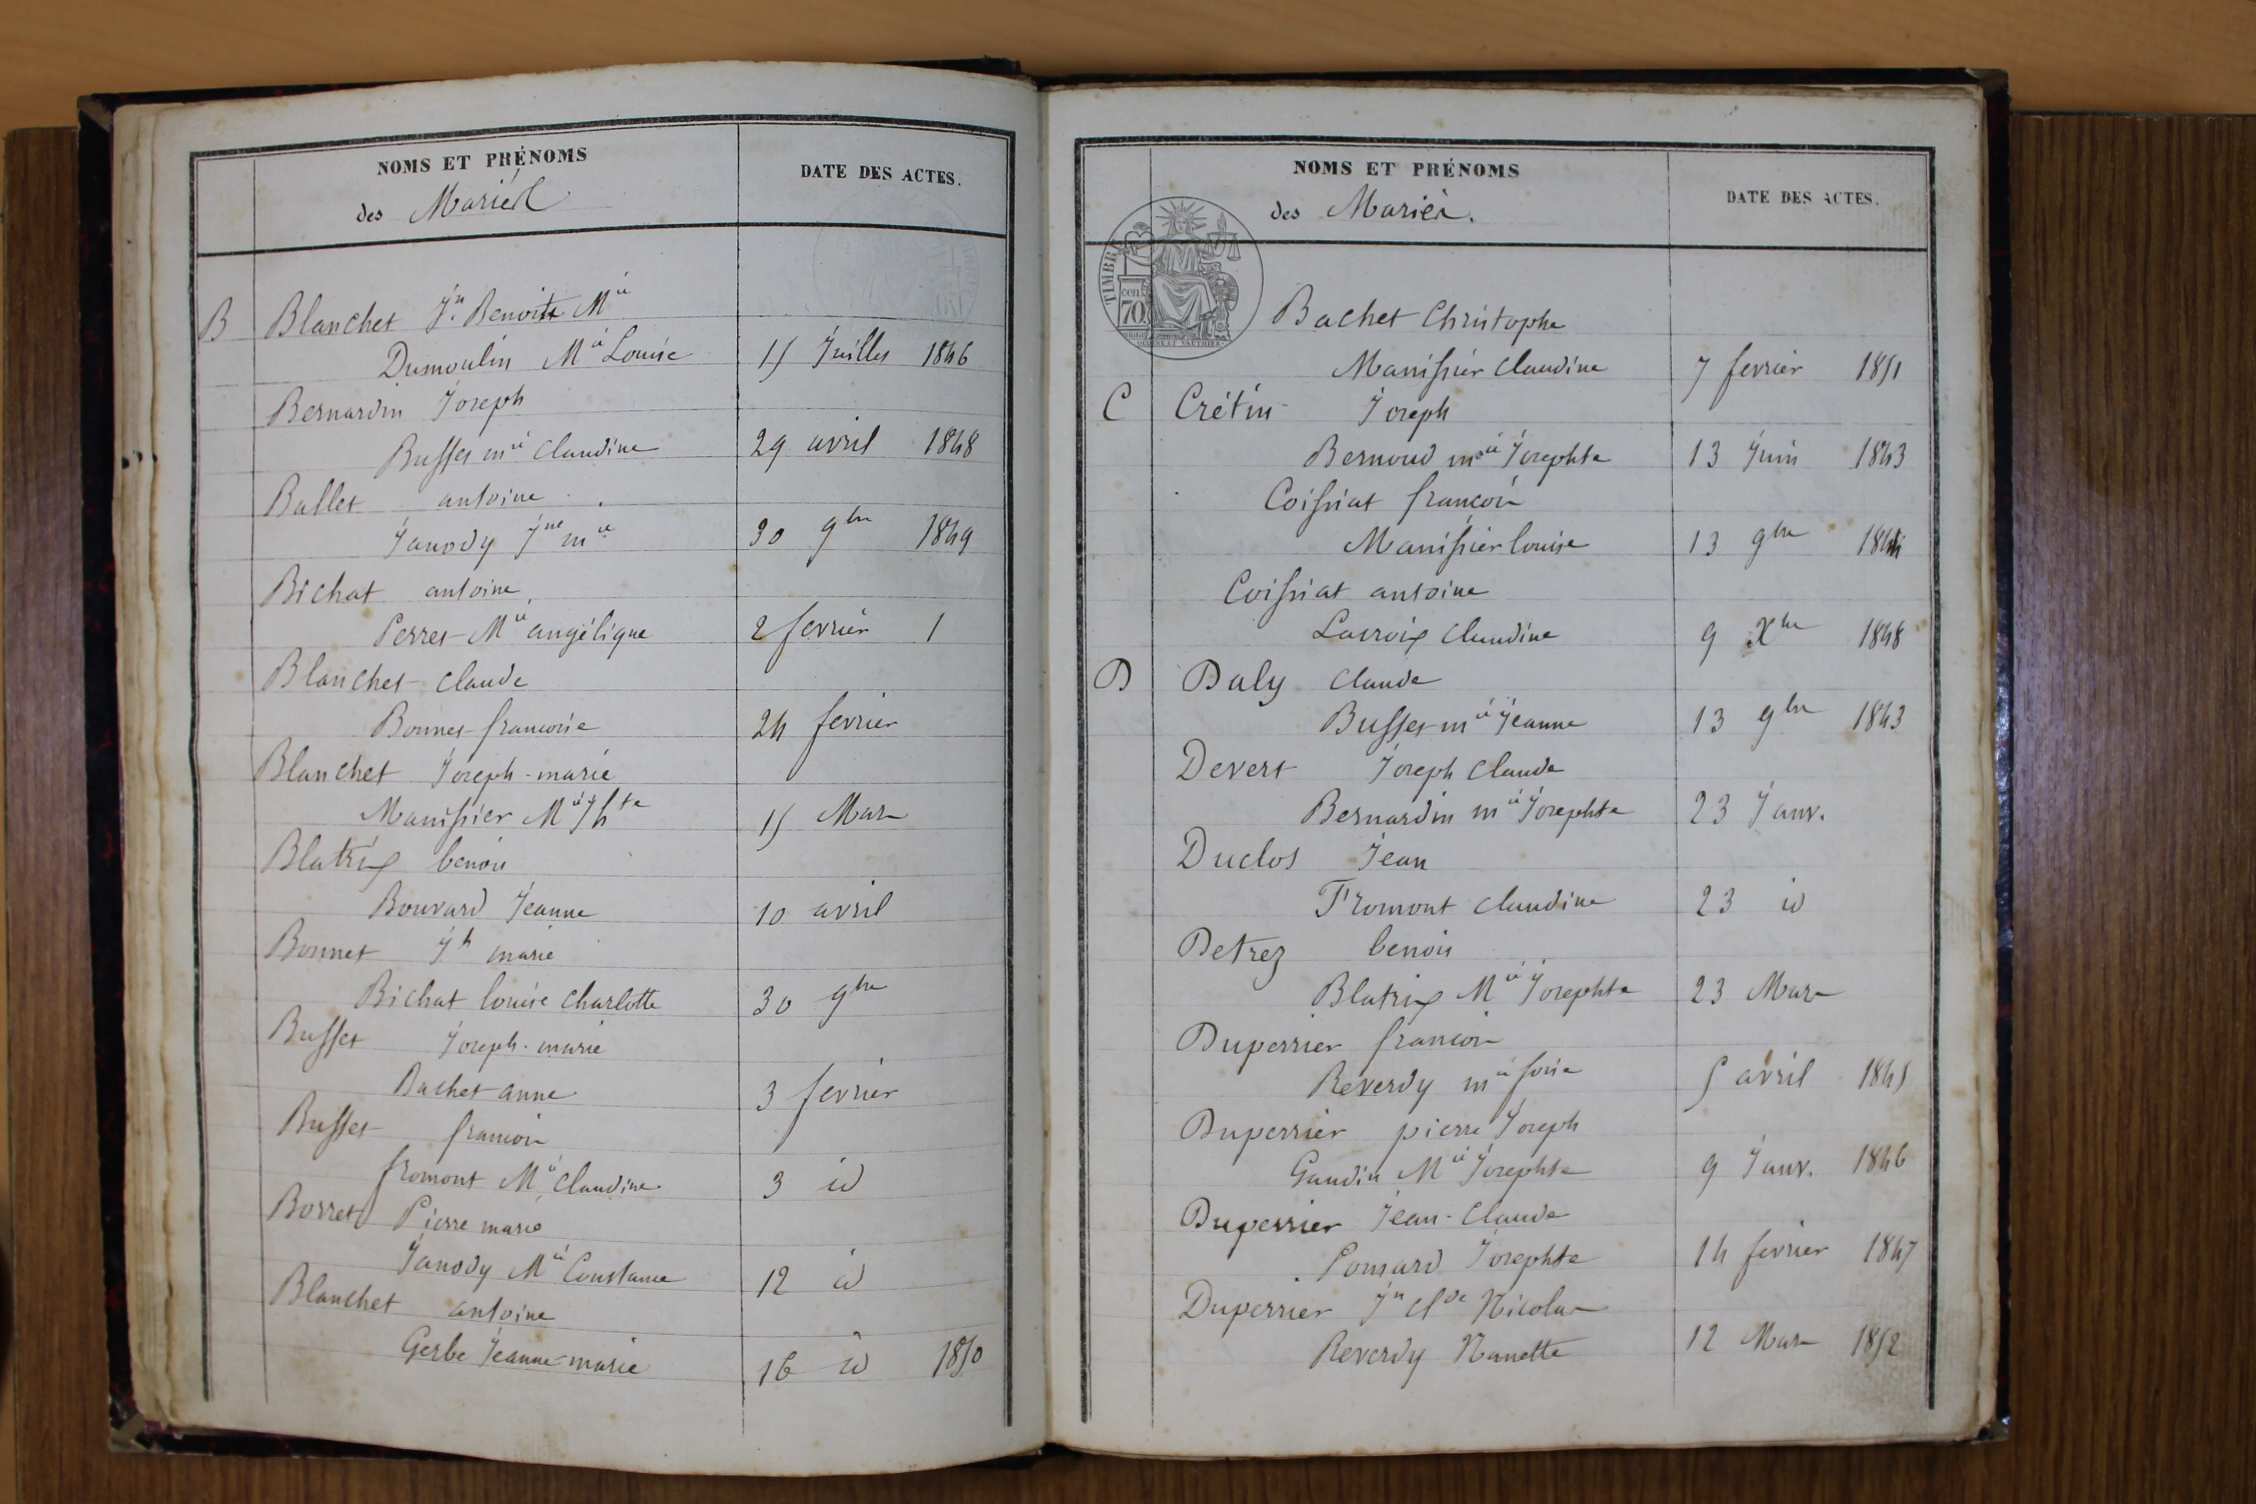 NOMS ET PRÉNOMS
des Mariés
DATE DES ACTES.
B Blanchet Jn. Benoitt Mie
Dumoulin Mie Louise 15 Juillet 1846
Bernardin Joseph
Busset mie Claudine 29 avril 1848
Ballet antoine
Janody Jne mie 30 9bre 1849
Bichat antoine
Perret Mie angélique 2 fevrier 1
Blanchet claude
Bonnet francoise 24 fevrier
Blanchet Joseph-marie
Manissier Mie Jhte 15 Mars
Blatrix benoit
Bouvard Jeanne 10 avril
Bonnet Jh marie
Bichat louise charlotte 30 9bre
Busset Joseph-marie
Bachet anne 3 fevrier
Busset francois
fromont Mie Claudine 3 id
Borret Pierre marie
Janody Mie Constance 12 id
Blanchet antoine
Gerbe Jeanne-marie 16 id 1850
NOMS ET PRÉNOMS
des Mariés.
DATE DES ACTES.
TIMBRE
70
Bachet Christophe
Manissier Claudine 7 fevrier 1851
C Crétin Joseph
Bernoud mie Josephte 13 Juin 1843
Coissiat francois
Manissier louise 13 9bre 1844
Coissiat antoine
Lacroix Claudine 9 Xbre 1848
D Daly Claude
Busset mie Jeanne 13 9bre 1843
Devert Joseph Claude
Bernardin mie Josephte 23 Janv.
Duclos Jean
Fromont Claudine 23 id
Detrez benoit
Blatrix Mie Josephte 23 Mars
Duperrier francois
Reverdy mie 5 avril 1845
Duperrier pierre Joseph
Gaudin Mie Josephte 9 Janv. 1846
Duperrier Jean-Claude
Ponsard Josephte 14 fevrier 1847
Duperrier Jn Clde Nicolas
Reverdy Nanette 12 Mars 1852